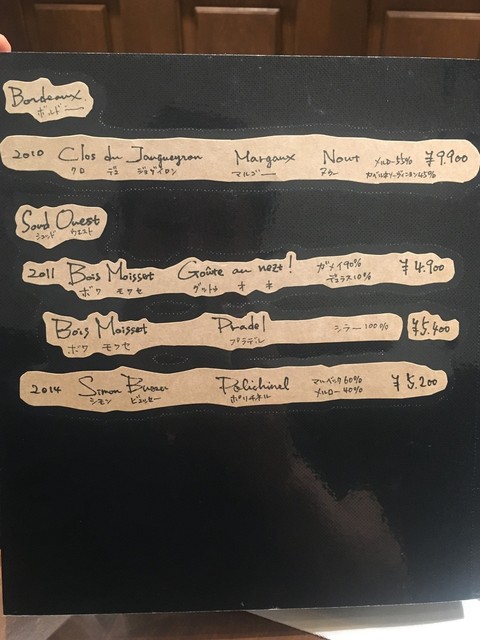 Bordeaux.
ボルドー
2010 Clos du Jaugueyron Margaux Nout メルロー55% ¥9.900
クロ デュ ジョゲイロン マルゴー ヌゥー カベルネソーヴィニヨン45%
Soud Ouest
シュッド ウエスト
2011 Bois Moisset Goûte au nezt! ガメイ90% ¥4.900
ボワ モワセ グット オ ネ デュラス10%
Bois Moisset Pradel シラー100% ¥5.400
ボワ モワセ プラデル
2014 Simon Polichinel マルベック60% ¥5.200
シモン ビュッセー ポリシネル メルロー40%